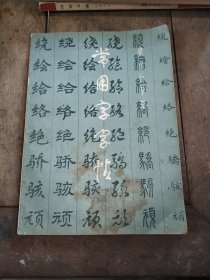 常用字字帖
绕绘给络绝骄骇顽
绕绘给络绝骄骇顽
绕绘给络绝骄骇顽
绕绘给络绝骄骇顽
绕绘给络绝骄骇顽